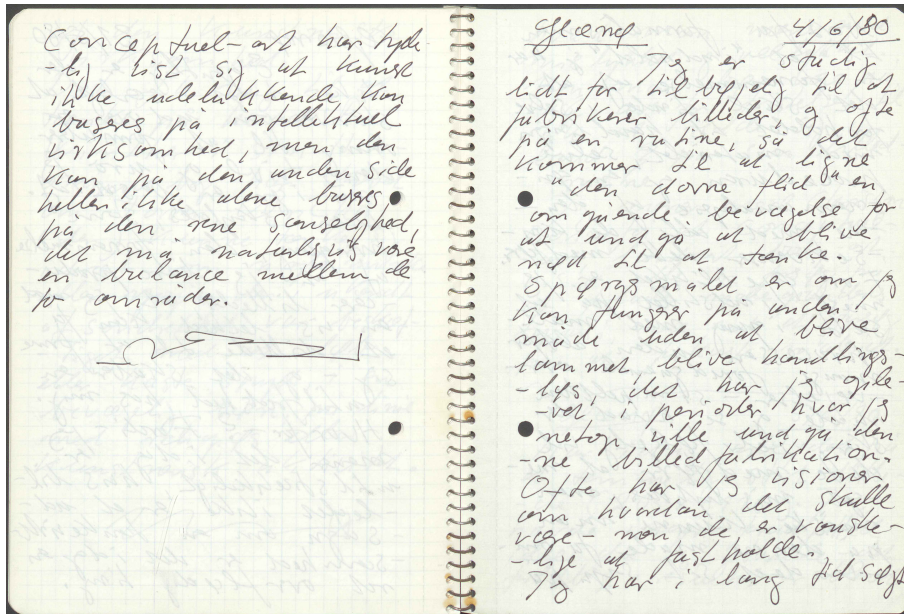 Conceptuel-art har tyde-
-lig vist sig at kunst
ikke udelukkende kan
baseres på intellektuel
virksomhed, men den
kan på den anden side
heller ikke alene baseres
på den rene sanselighed,
det må naturligvis være
en balance mellem de
to områder.
4/6/80
Jeg er stadig
lidt for tilbøjelig til at
fabrikerer billeder, og ofte
på en rutine, så det
kommer til at ligne
"den dovne flid" en
omgående bevægelse for
at undgå at blive
nød til at tænke.
Spørgsmålet er om jeg
kan fungerer på anden
måde uden at blive
lammet blive handlings-
-løs, det har jeg ople-
-vet, i perioder hvor jeg
netop ville undgå den-
-ne billedfabrikation.
Ofte har jeg visioner
om hvordan det skulle
være - men de er vanske-
-lige at fastholde.
Jeg har i lang tid søgt